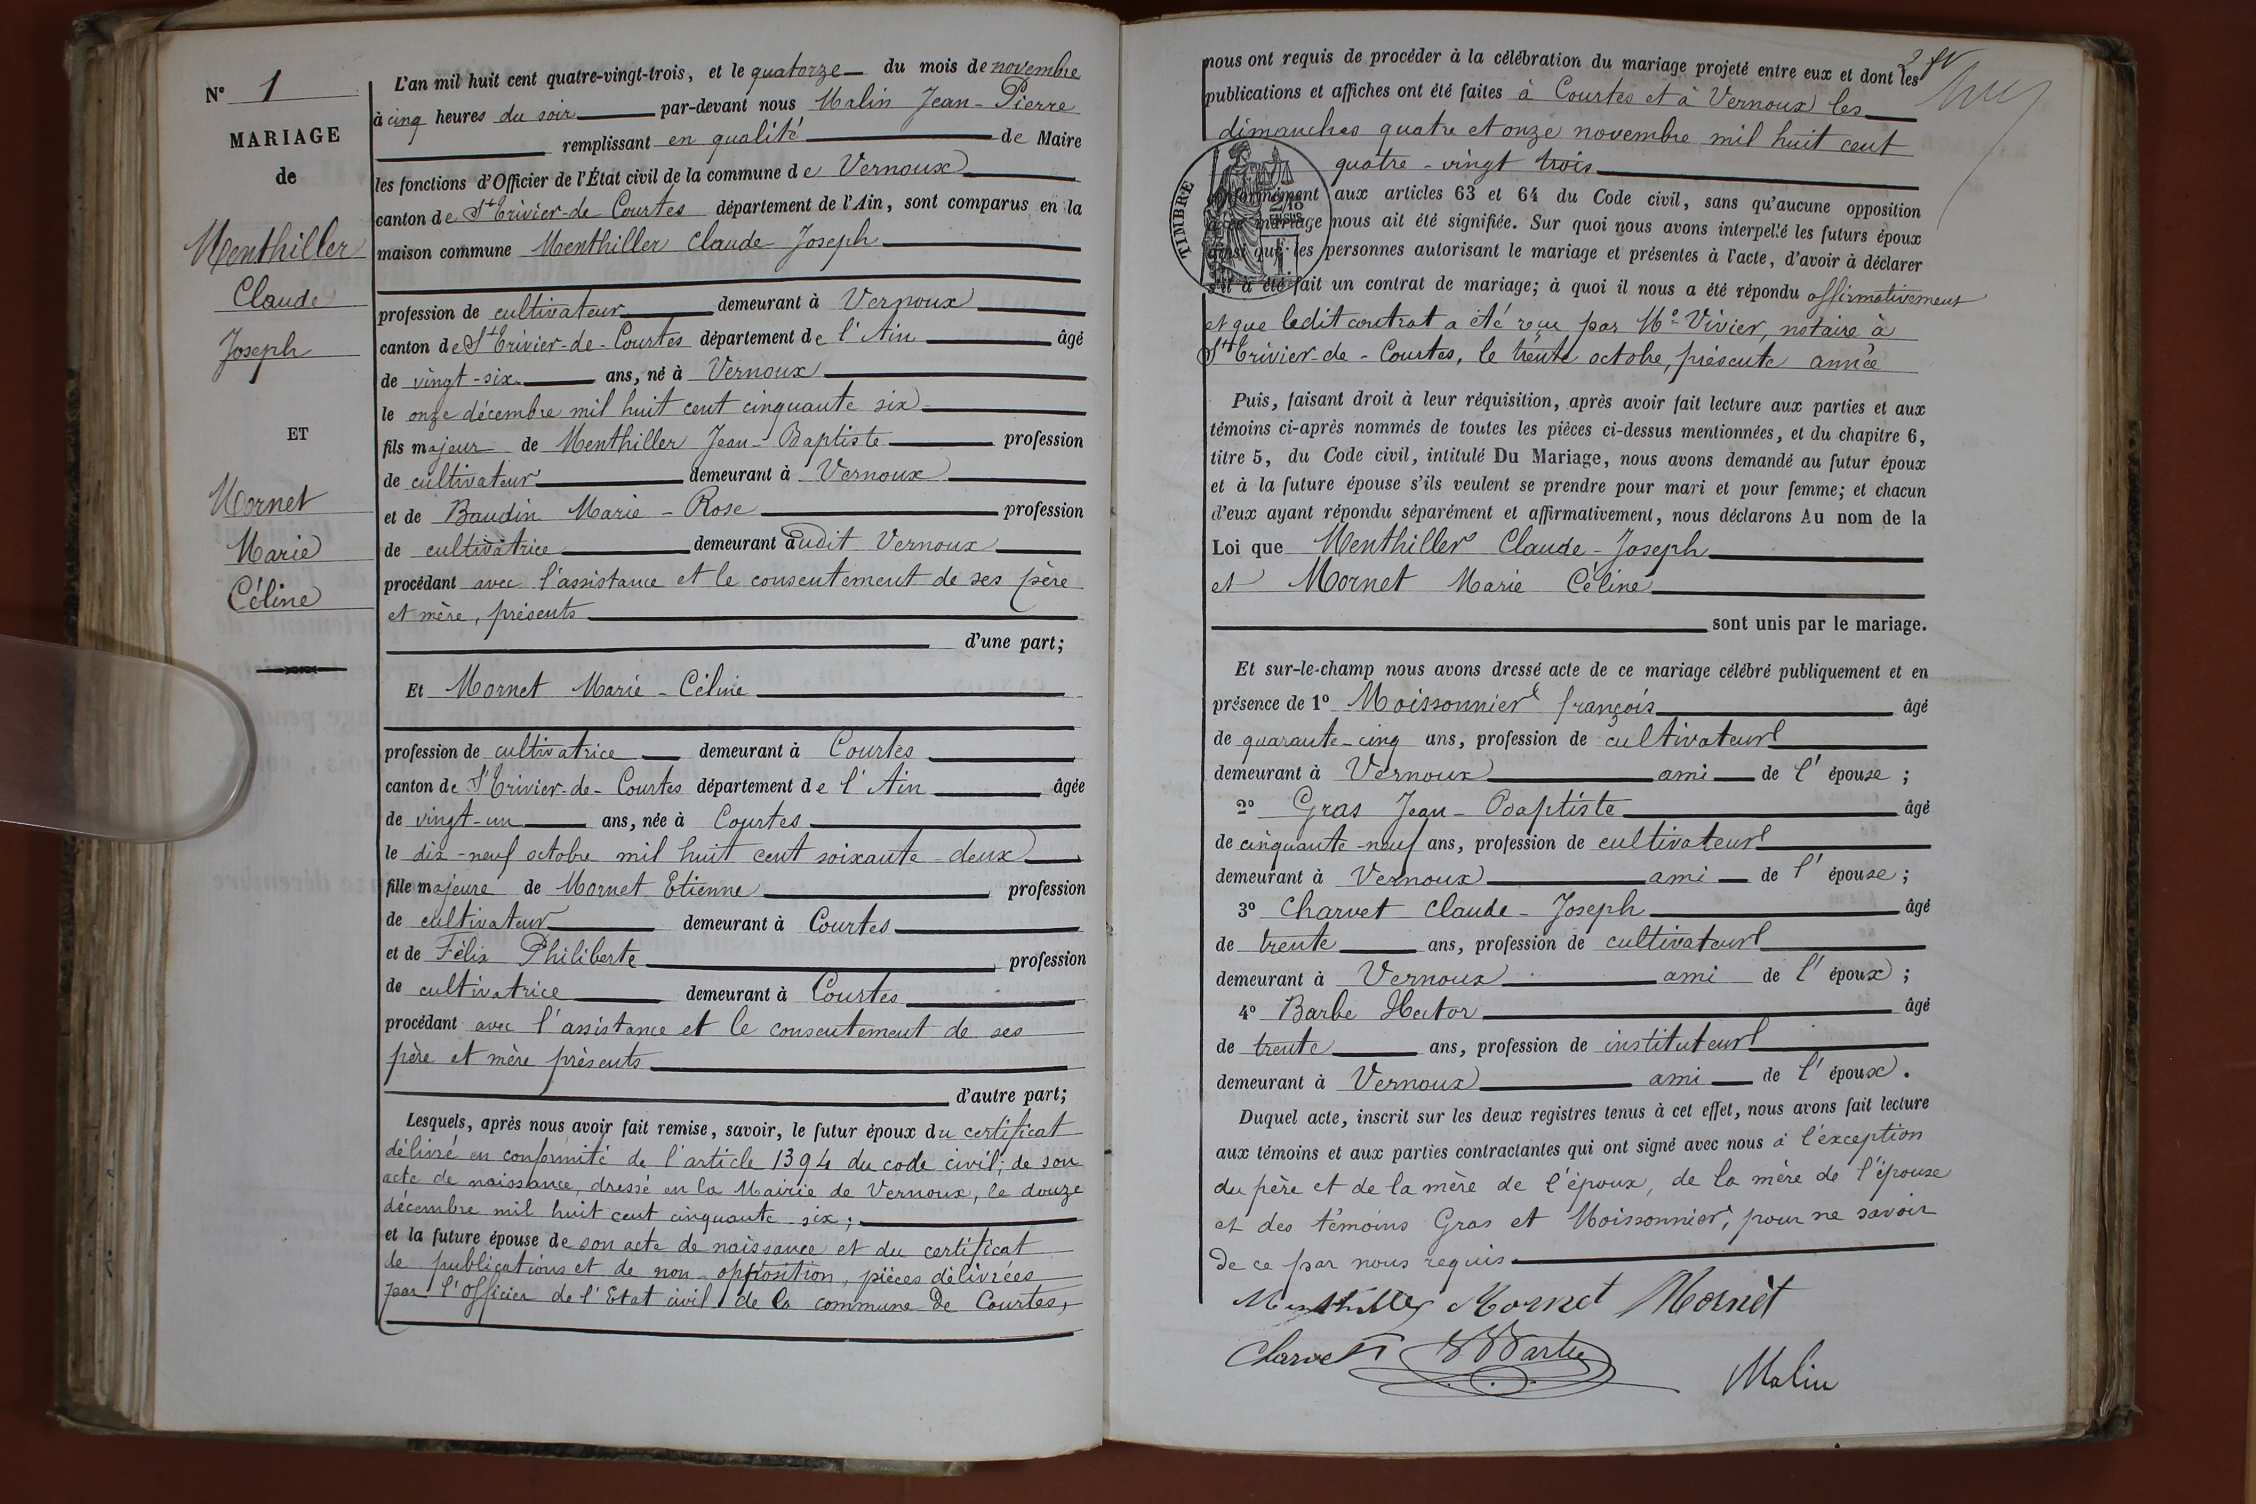 N° 1
MARIAGE
de
Menthiller
Claude
Joseph
ET
Mornet
Marie
Céline
L'an mil huit cent quatre-vingt-trois, et le quatorze du mois de novembre
à cinq heures du soir par-devant nous Malin Jean-Pierre
remplissant en qualité de Maire
les fonctions d'Officier de l'État civil de la commune de Vernoux
canton de St Trivier-de Courtes département de l'Ain, sont comparus en la
maison commune Menthiller Claude-Joseph
profession de cultivateur demeurant à Vernoux
canton de St Trivier-de-Courtes département de l'Ain âgé
de vingt-six ans, né à Vernoux
le onze décembre mil huit cent cinquante six
fils majeur de Menthiller Jean-Baptiste profession
de cultivateur demeurant à Vernoux
et de Baudin Marie-Rose profession
de cultivatrice demeurant audit Vernoux
procédant avec l'assistance et le consentement de ses père
et mère, présents
d'une part;
Et Mornet Marie-Céline
profession de cultivatrice demeurant à Courtes
canton de St Trivier-de-Courtes département de l'Ain âgée
de vingt-un ans, née à Courtes
le dix-neuf octobre mil huit cent soixante-deux
fille majeure de Mornet Etienne profession
de cultivateur demeurant à Courtes
et de Félix Philiberte profession
de cultivatrice demeurant à Courtes
procédant avec l'assistance et le consentement de ses
père et mère présents
d'autre part;
Lesquels, après nous avoir fait remise, savoir, le futur époux du certificat
délivré en conformité de l'article 1394 du code civil; de son
acte de naissance, dressé en la Mairie de Vernoux, le douze
décembre mil huit cent cinquante-six;
et la future épouse de son acte de naissance et du certificat
de publications et de non-opposition, pièces délivrées
par l'officier de l'Etat civil de la commune de Courtes,
nous ont requis de procéder à la célébration du mariage projeté entre eux et dont les
publications et affiches ont été faites à Courtes et à Vernoux les
dimanches quatre et onze novembre mil huit cent
quatre-vingt trois
TIMBRE
conformément aux articles 63 et 64 du Code civil, sans qu'aucune opposition
à ce mariage nous ait été signifiée. Sur quoi nous avons interpellé les futurs époux
ainsi que les personnes autorisant le mariage et présentes à l'acte, d'avoir à déclarer
s'il a été fait un contrat de mariage; à quoi il nous a été répondu affirmativement
et que ledit contrat a été reçu par Me Vivier, notaire à
St Trivier-de-Courtes, le trente octobre, présente année
Puis, faisant droit à leur réquisition, après avoir fait lecture aux parties et aux
témoins ci-après nommés de toutes les pièces ci-dessus mentionnées, et du chapitre 6,
titre 5, du Code civil, intitulé Du Mariage, nous avons demandé au futur époux
et à la future épouse s'ils veulent se prendre pour mari et pour femme; et chacun
d'eux ayant répondu séparément et affirmativement, nous déclarons Au nom de la
Loi que Menthiller Claude-Joseph
et Mornet Marie Céline
sont unis par le mariage.
Et sur-le-champ nous avons dressé acte de ce mariage célébré publiquement et en
présence de 1° Moissonnier françois âgé
de quarante-cinq ans, profession de cultivateur
demeurant à Vernoux ami de l'épouse;
2° Gras Jean-Baptiste âgé
de cinquante-neuf ans, profession de cultivateur
demeurant à Vernoux ami de l'épouse;
3° Charvet Claude-Joseph âgé
de trente ans, profession de cultivateur
demeurant à Vernoux ami de l'époux;
4° Barbe Hector âgé
de trente ans, profession de instituteur
demeurant à Vernoux ami de l'époux.
Duquel acte, inscrit sur les deux registres tenus à cet effet, nous avons fait lecture
aux témoins et aux parties contractantes qui ont signé avec nous à l'exception
du père et de la mère de l'époux, de la mère de l'épouse
et des témoins Gras et Moissonnier, pour ne savoir
de ce par nous requis
Menthiller Mornet Mornet
Charvet H Barbe Malin